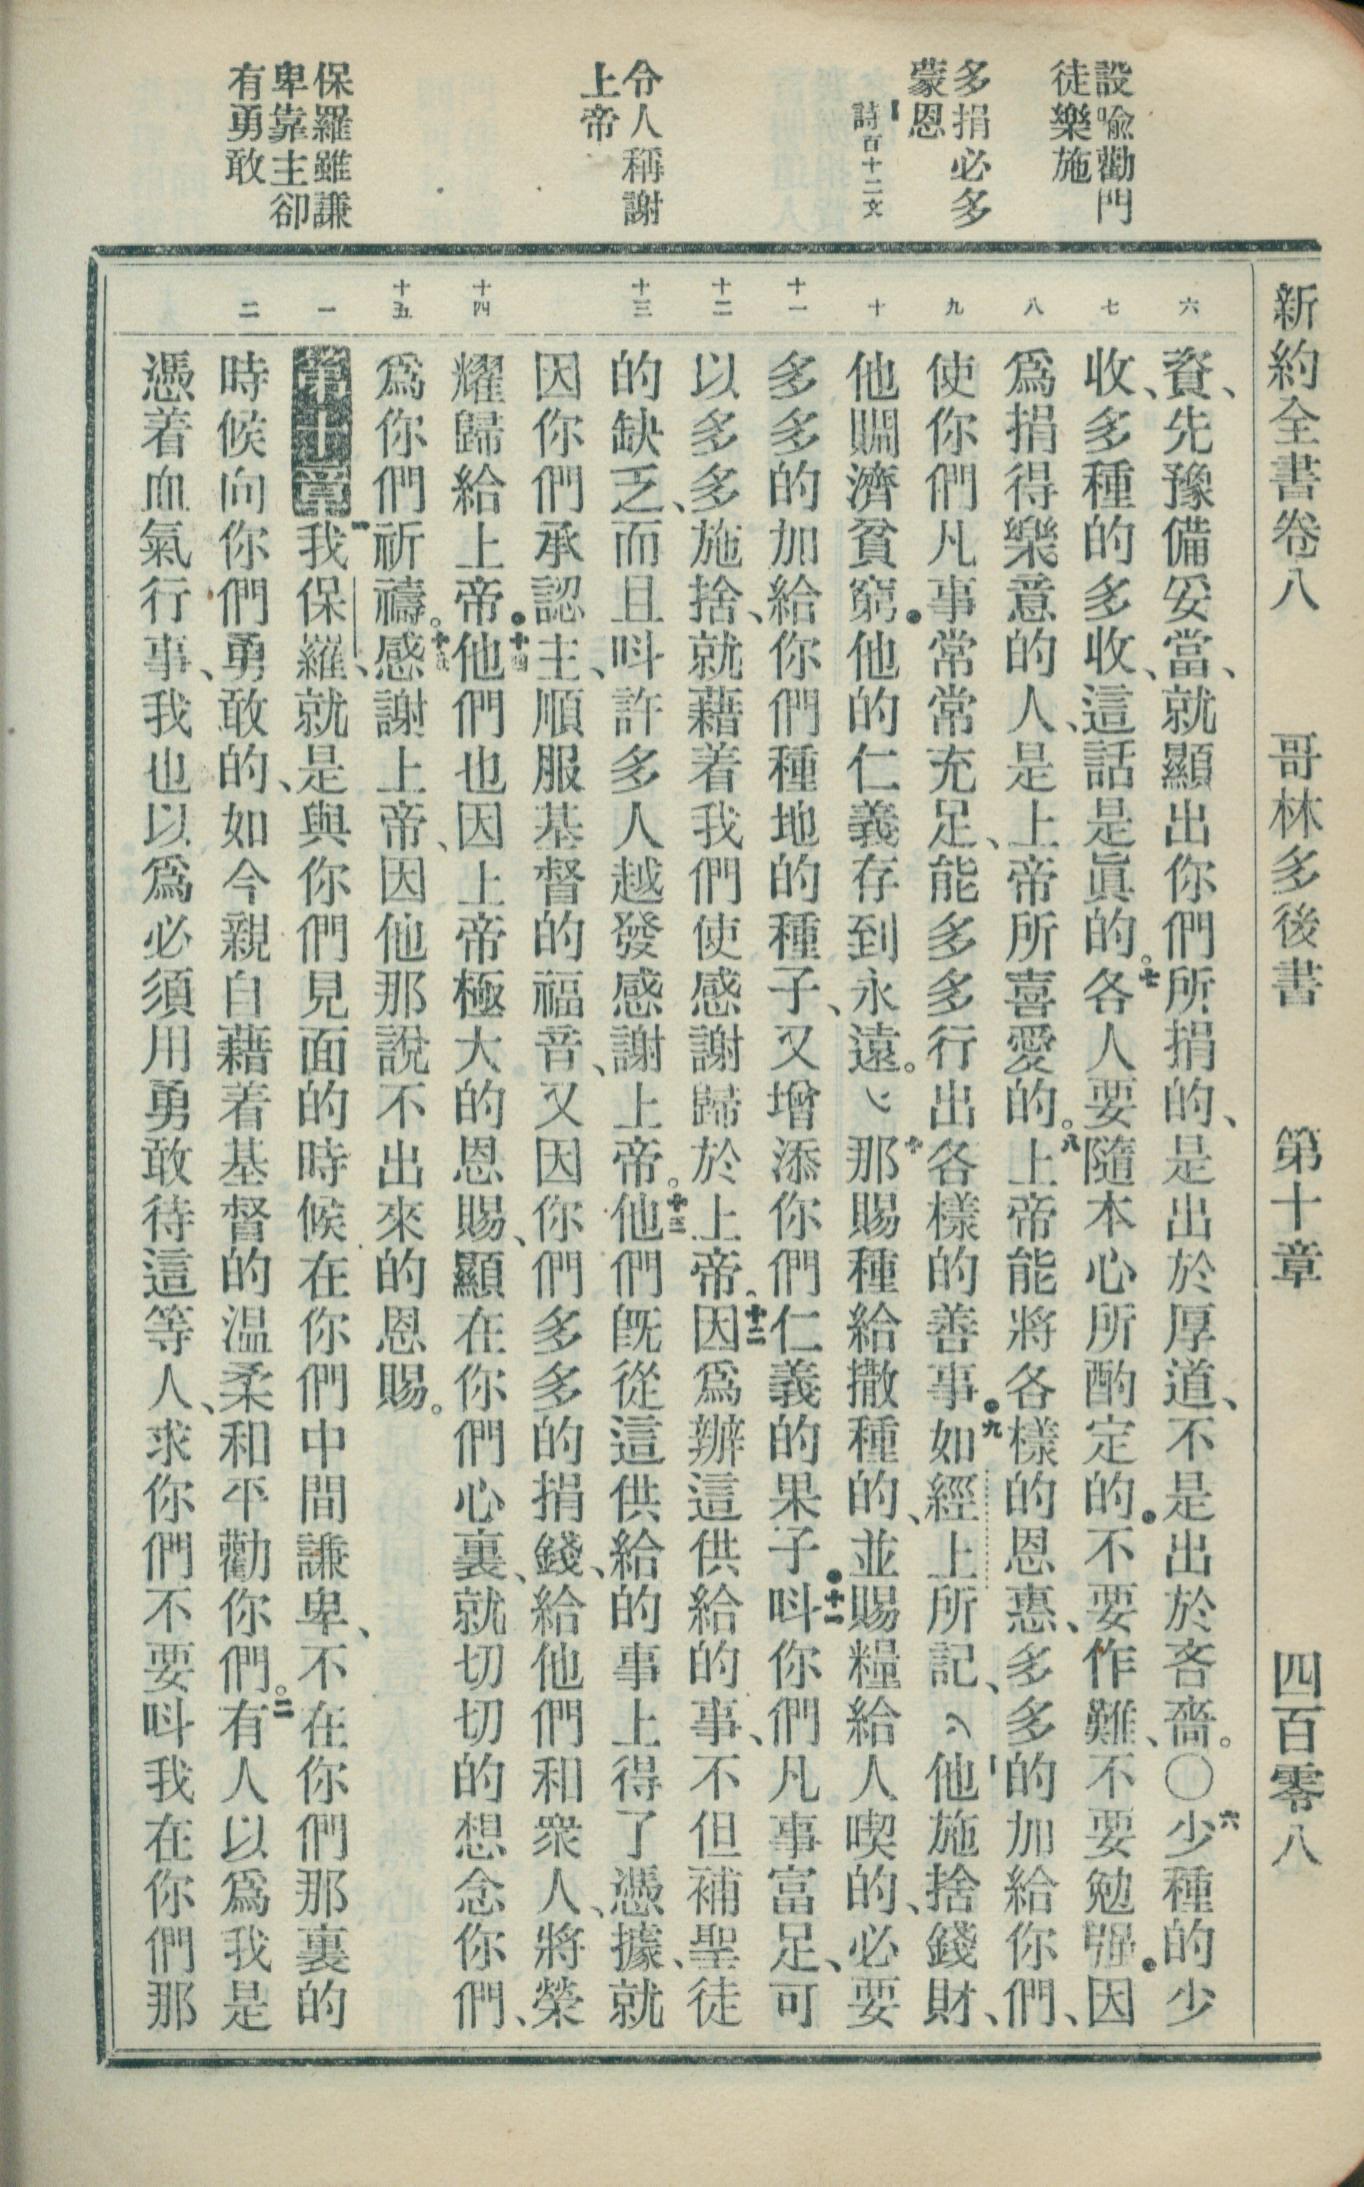 新約全書卷八 哥林多後書 第十章 四百零八
設喩勸門
徒樂施
多捐必多
蒙恩
詩百十二文
令人稱謝
上帝
保羅雖謙
卑靠主卻
有勇敢
六 七 八 九 十 十一 十二 十三 十四 十五 一 二
資、先豫備妥當、就顯出你們所捐的、是出於厚道、不是出於吝嗇。〇六少種的少
收、多種的多收、這話是眞的。七各人要隨本心所酌定的•不要作難、不要勉强•因
爲捐得樂意的人、是上帝所喜愛的。八上帝能將各樣的恩惠、多多的加給你們、
使你們凡事常常充足、能多多行出各樣的善事•九如經上所記、他施捨錢財、
他賙濟貧窮•他的仁義存到永遠。十那賜種給撒種的、並賜糧給人喫的、必要
多多的加給你們種地的種子、又增添你們仁義的果子•十一呌你們凡事富足、可
以多多施捨、就藉着我們使感謝歸於上帝。十二因爲辦這供給的事、不但補聖徒
的缺乏、而且呌許多人越發感謝上帝。十三他們旣從這供給的事上得了憑據、就
因你們承認主、順服基督的福音、又因你們多多的捐錢、給他們和衆人、將榮
耀歸給上帝•十四他們也因上帝極大的恩賜、顯在你們心裏、就切切的想念你們、
爲你們祈禱。十五感謝上帝、因他那說不出來的恩賜。
第十章一我保羅、就是與你們見面的時候在你們中間謙卑、不在你們那裏的
時候向你們勇敢的、如今親自藉着基督的温柔和平勸你們。二有人以爲我是
憑着血氣行事、我也以爲必須用勇敢待這等人、求你們不要呌我在你們那